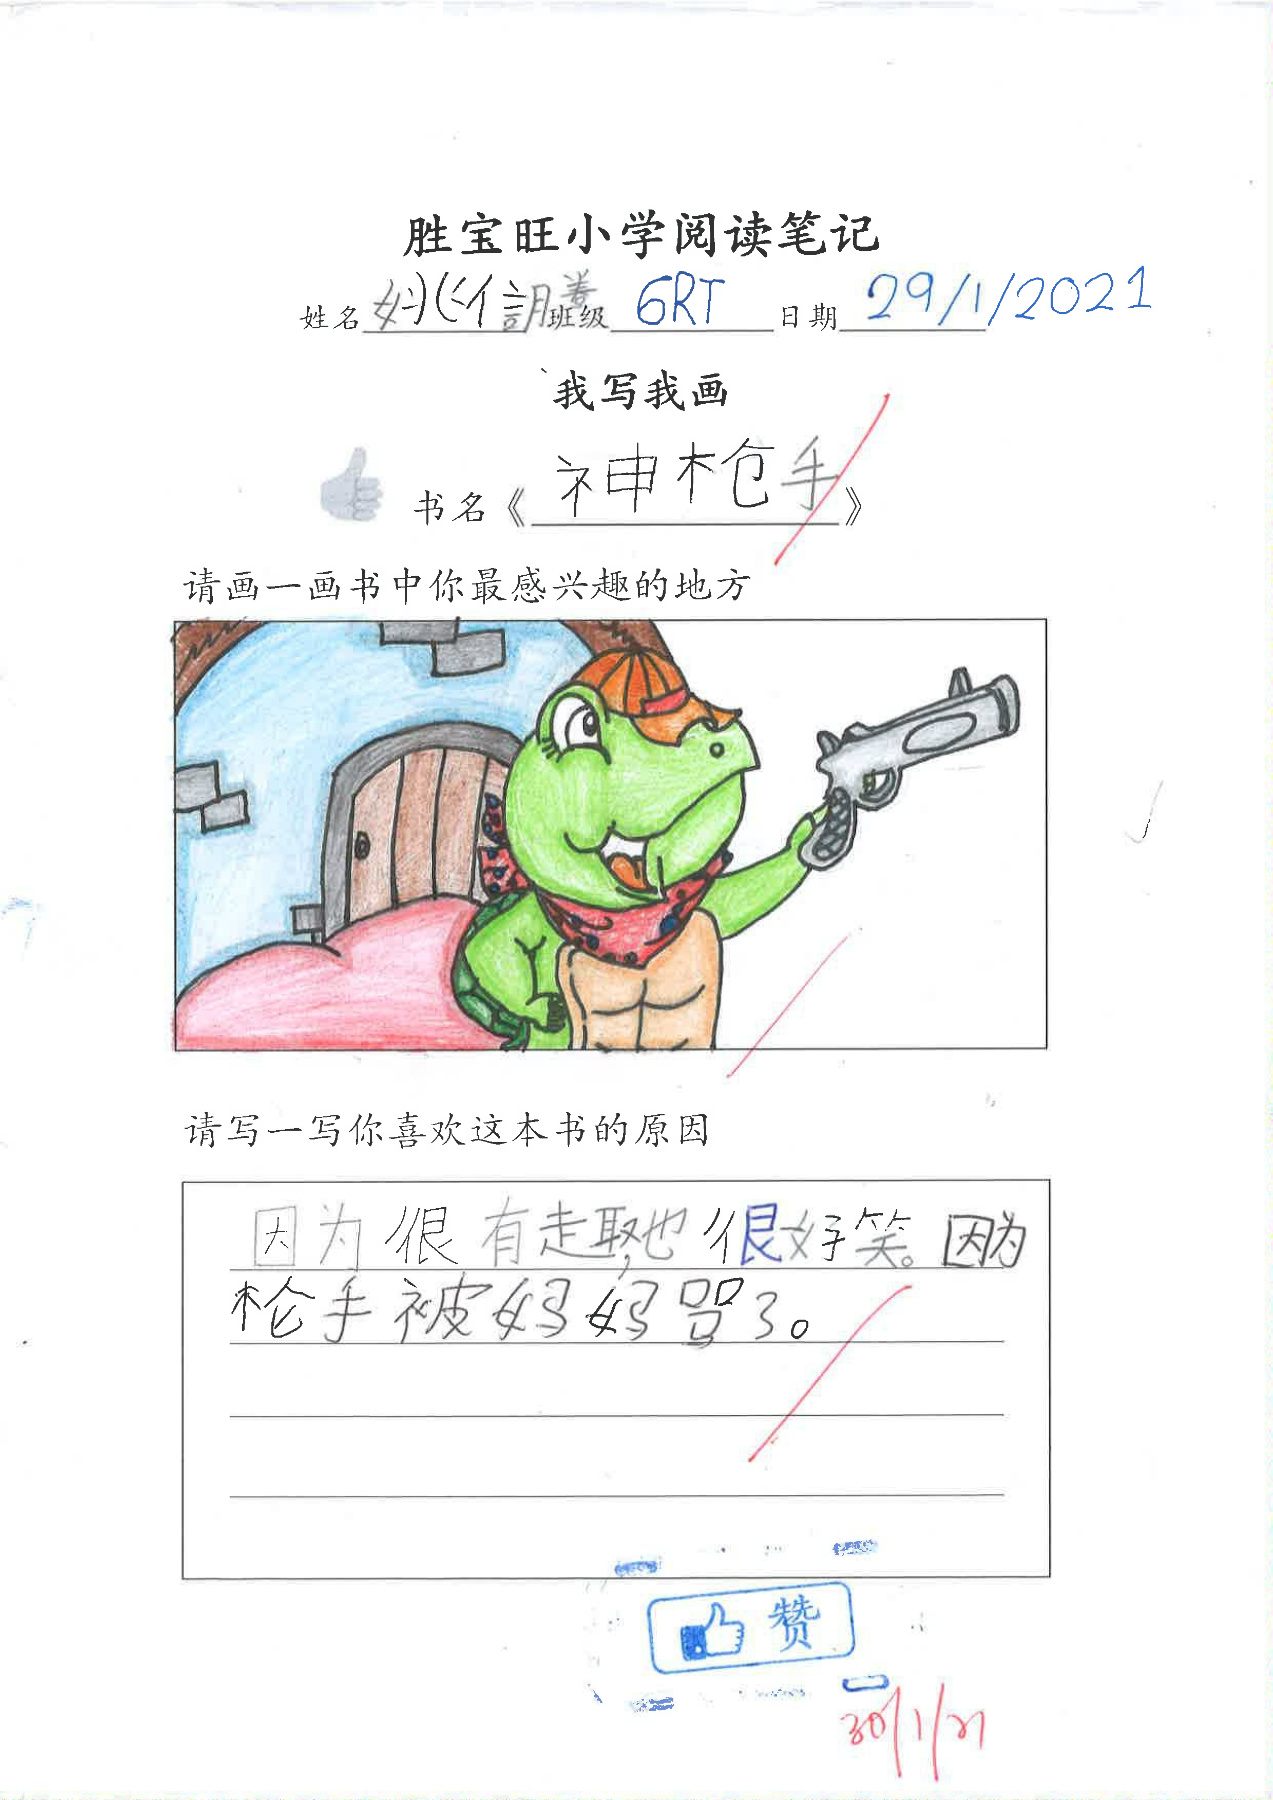 胜宝旺小学阅读笔记
姓名 班级 6RT 日期 29/1/2021
我写我画
书名《神枪手》
请画一画书中你最感兴趣的地方
请写一写你喜欢这本书的原因
因为很有走趣，也很好笑。因为
枪手被妈妈骂了。
赞
30/1/21